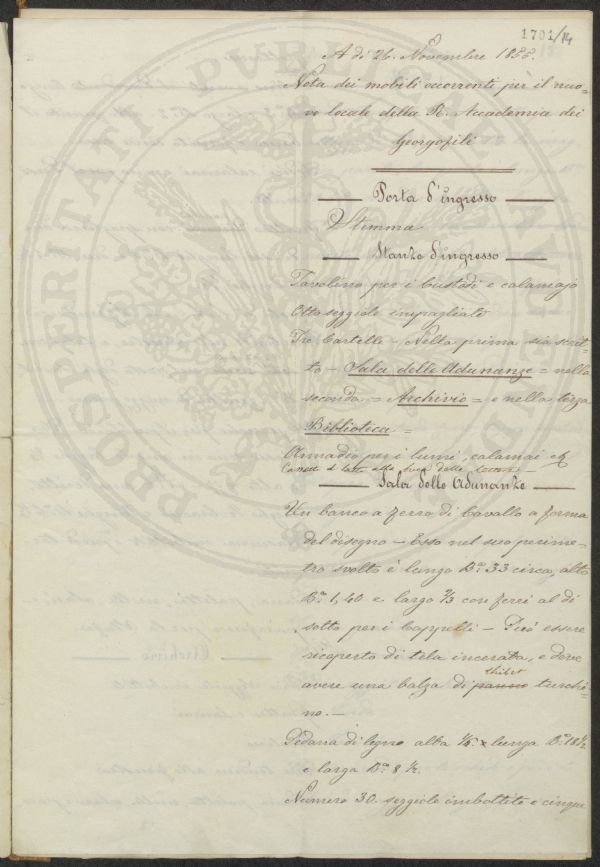 1701/14
A dì 26. Novembre 1856.
Nota dei mobili occorrenti per il nuo-
vo locale della R. Accademia dei
Georgofili
Porta d'ingresso
Stemma
Stanza d'ingresso
Tavolino per i Custodi e calamajo
Otto seggiole impagliate
Tre Cartelle - Nella prima sia scrit-
to - Sala delle Adunanze = nella
seconda = Archivio = e nella terza
Biblioteca =
Armadio per i lumi, calamai
alla luce delle
Sala delle Adunanze
Un banco a ferro di Cavallo a forma
del disegno - Esso nel suo perime-
tro svolto è lungo Bª 33 circa, alto
Bª 1,40 e largo 2/3 con ferri al di
sotto per i Cappelli - Può essere
ricoperto di tela incerata, e deve
thibet
avere una balza di panno turchi-
no. -
Pedana di legno alta lunga Bª 18 1/2
e larga Bª 8 1/2.
Numero 30. seggiole imbottite e cinque
PROSPERITATI PVBLICAE AVGENDAE